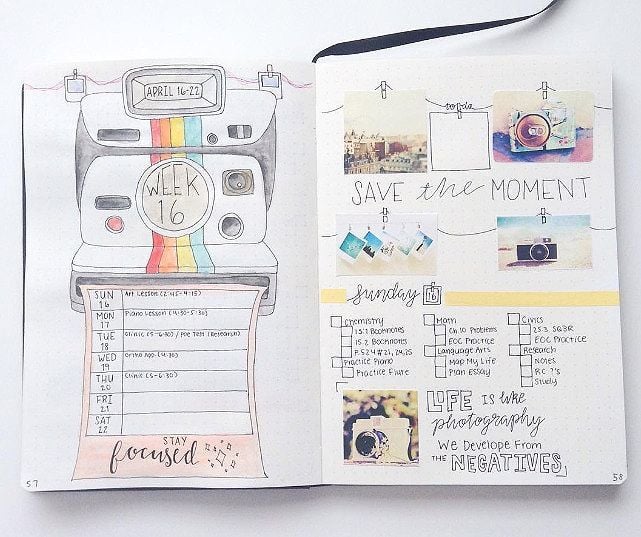 APRIL 16-22
WEEK
16
SUN
16
Art Lesson (2:45-4:15)
MON
17
Piano Lesson (4:30-5:30)
TUE
18
Clinic (5-6:30) / Pre Test (Research)
WED
19
Ortho App. (4:30)
THU
20
Clinic (5-6:30)
FRI
21
SAT
22
STAY
focused
57
to-do
SAVE the MOMENT
Sunday 16
Chemistry
15.1 Booknotes
15.2 Booknotes
P.524 #21, 24, 25
Practice Piano
Practice Flute
Math
Ch. 10 Problems
EOC Practice
Language Arts
Map My Life
Plan Essay
Civics
25.3 SG&R
EOC Practice
Research
Notes
RC ?'s
Study
LIFE is like
photography
We Develope From
THE NEGATIVES
58